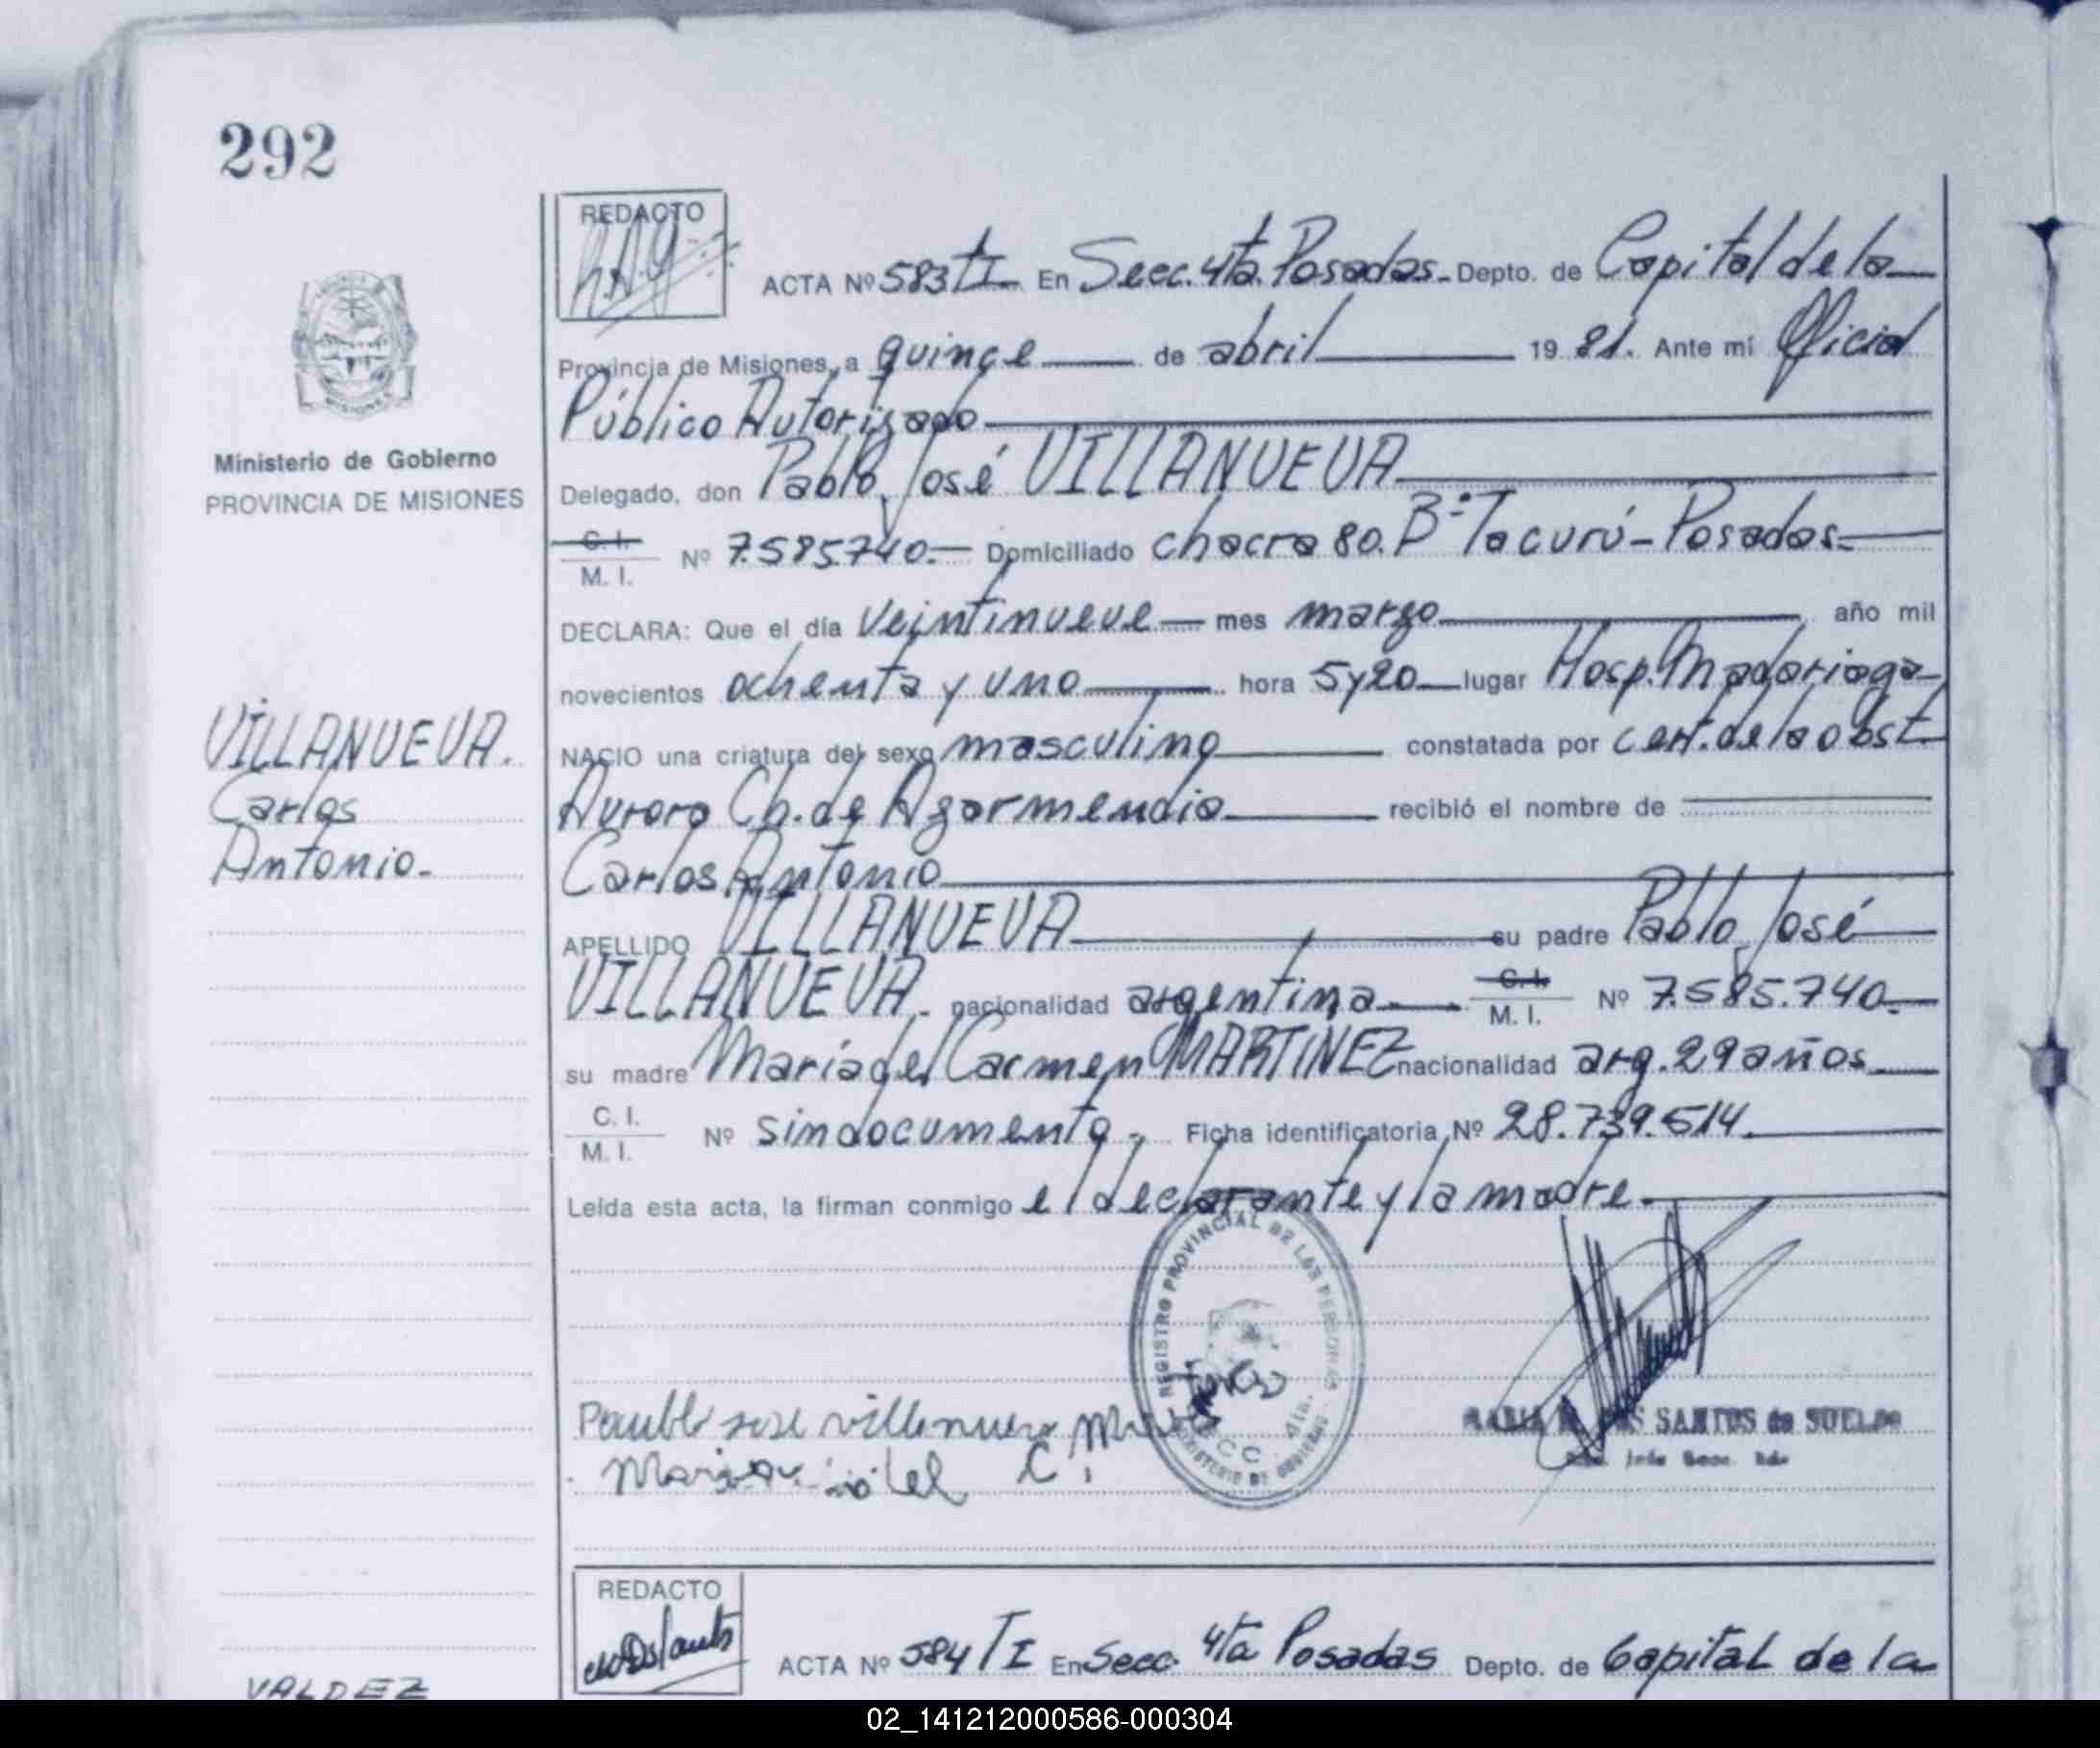 292
REDACTO
ACTA Nº 583 tI En Secc. 4ta. Posadas. Depto. de Capital de la
Provincia de Misiones, a quince de abril 19 81. Ante mí Oficial
Público Autorizado
Delegado, don Pablo José VILLANUEVA
Ministerio de Gobierno
PROVINCIA DE MISIONES
C. I.
M. I. Nº 7.585.740.- Domiciliado chacra 80. Bº Tacurú - Posadas.
DECLARA: Que el día veintinueve mes marzo año mil
novecientos ochenta y uno hora 5 y 20 lugar Hosp. Madariaga
NACIO una criatura del sexo masculino constatada por cert. de la obst.
Aurora Ch. de Agarmendia recibió el nombre de
Carlos Antonio
VILLANUEVA.
Carlos
Antonio.
APELLIDO VILLANUEVA su padre Pablo José
VILLANUEVA. nacionalidad argentina C. I.
M. I. Nº 7.585.740.
su madre María del Carmen MARTINEZ nacionalidad arg. 29 años
C. I.
M. I. Nº sin documento. Ficha identificatoria Nº 28.739.514.
Leída esta acta, la firman conmigo el declarante y la madre.
REGISTRO PROVINCIAL DE LAS PERSONAS
MINISTERIO DE GOBIERNO
SANTOS de
REDACTO
ACTA Nº 584 TI En Secc. 4ta Posadas Depto. de Capital de la
VALDEZ
02_141212000586-000304